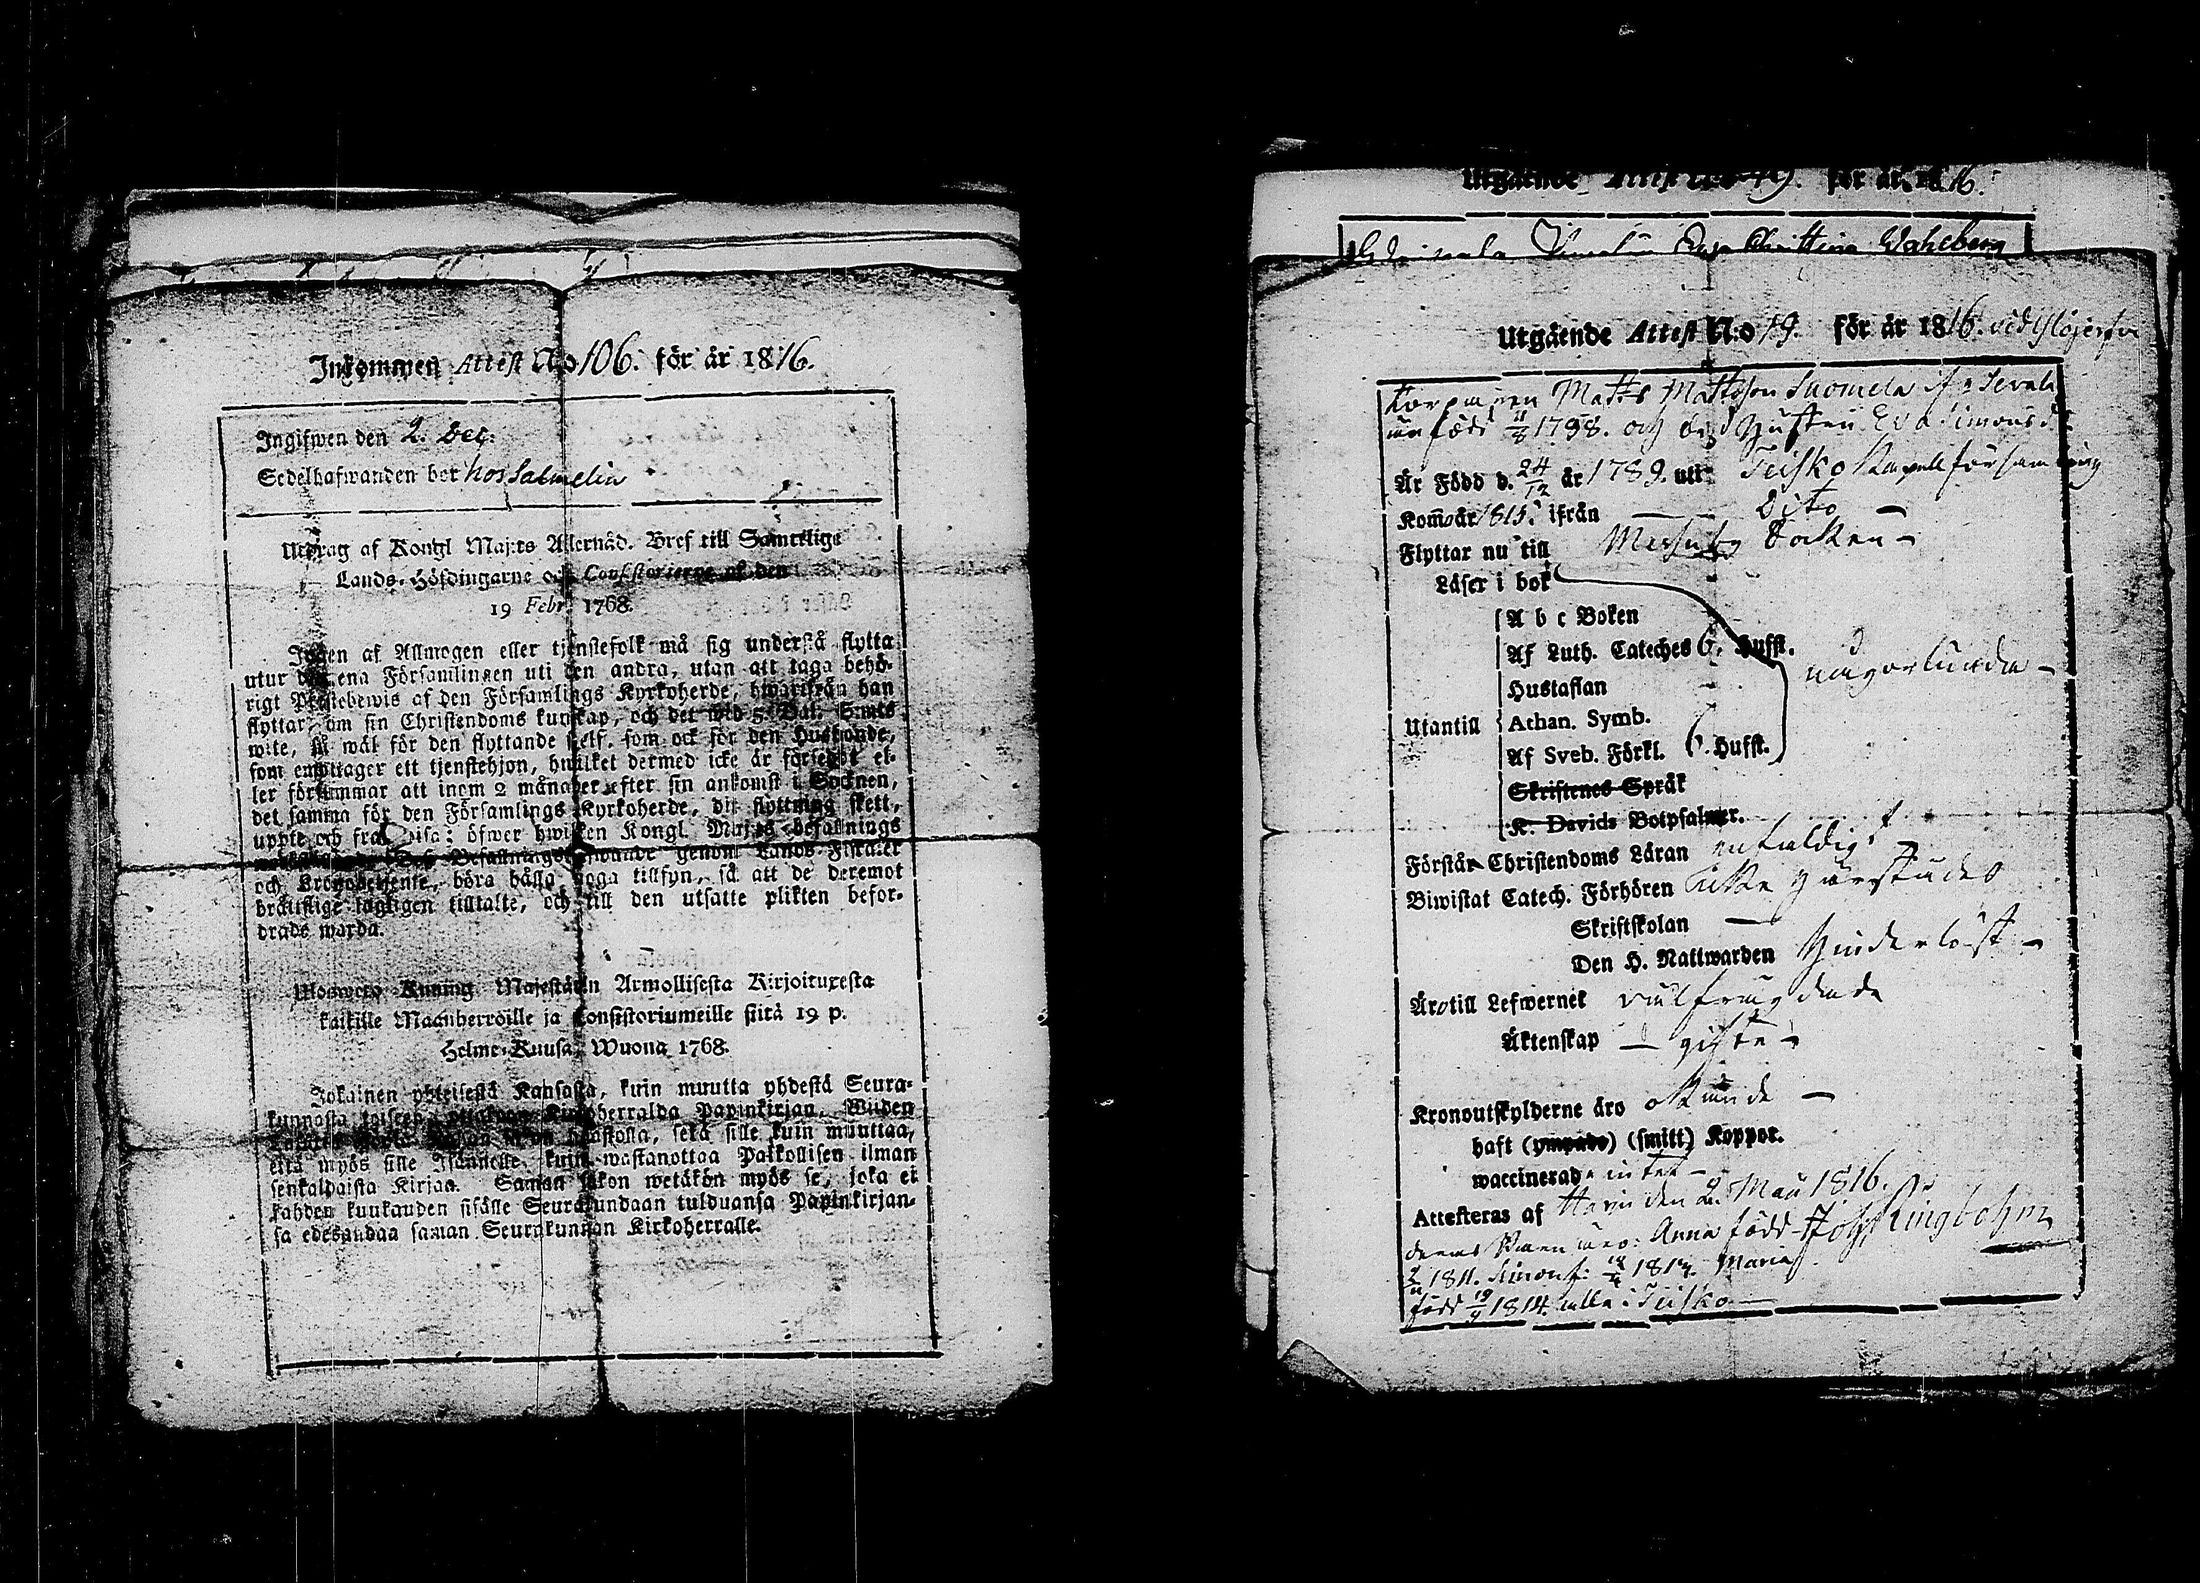 Inkommen Attest N:o 106. för år 1816.
Ingifwen den 2. Dec:
Sedelhafwanden bor hos Salmelin
Utdrag af Kongl Maj:ts Allernåd. Bref till Samtlige
Lands-Höfdingarne och Consistorierne af den
19 Febr. 1768.
Ingen af Allmogen eller tjenstefolk må sig understå flytta
utur den ena Församlingen uti den andra, utan att taga behö-
rigt Prestebewis af den Församlings Kyrkoherde, hwarifrån han
flyttar, om sin Christendoms kunskap, och det wid 5 Dal. S:mts
wite, så wäl för den flyttande self, som ock för den Husbonde,
som emottager ett tjenstehjon, hwilket dermed icke är försedt el-
ler försummar att inom 2 månader efter sin ankomst i Socknen,
det samma för den Församlings Kyrkoherde, dit flyttning skett,
uppte och framwisa; öfwer hwilken Kongl. Maj:ts befallnings
Befallningshafwande genom Lands-Fiskaler
och Kronobetjente, böra hålla noga tillsyn, så att de deremot
bråttslige lagligen tilltalte, och till den utsatte plikten befor-
drade warda.
Ulosweto Kuning. Majestätin Armollisesta Kirjoituxesta
kaikille Maanherroille ja Consistoriumeille siitä 19 p.
Helme-Kuusa Wuona 1768.
Jokainen yhteisestä Kansasta, kuin muutta yhdestä Seura-
kunnasta toiseen, ottakoon Kirkoherralda Papinkirjan, Wiiden
sakon uhastolla, sekä sille kuin muuttaa,
että myös sille Isännelle, kuin wastanottaa Palkollisen ilman
senkaltaista Kirjaa. Saman sakon wetäkön myös se, joka ei
kahden kuukauden sisälle Seurakundaan tulduansa Papinkirjan-
sa edesandaa saman Seurakunnan Kirkoherralle.
Utgående Attest N:o 49. för år 1816.
Christina Wahlberg
Utgående Attest N:o 19. för år 1816. vid Ylöjerfvi
Torparen Matts Mattsson Suomela
född 1788. och dess Hustru Eva Simonsdr
Är Född d. 24/12 år 1789. uti Teisko Kapellförsamling
Kom̄o år 1815. ifrån — Dito —
Flyttar nu till Messuby Socken —
Läser i bok
A b c Boken
Af Luth. Cateches 6. Hufst.
Hustaflan
någorlunda —
Utantill Athan. Symb.
Af Sveb. Förkl. 6. Hufst.
Skriftenes Språk
K. Davids Botpsalmer.
Förstår Christendoms Läran enfaldigt —
Biwistat Catech. Förhören icke
Skriftskolan —
Den H. Nattwarden hinderlöst —
Äro till Lefwernet väl frägdade
Äktenskap — gifte —
Kronoutskylderne äro okände —
haft (ympade) (smitt) Koppor.
waccinerade intet —
Attesteras af Harju den 2. Maii 1816.
deras Barn äro: Anna född Joh. Ringbohm
1811. Simon f. 1812. Maria
född 19/4 1814. alla i Teisko —